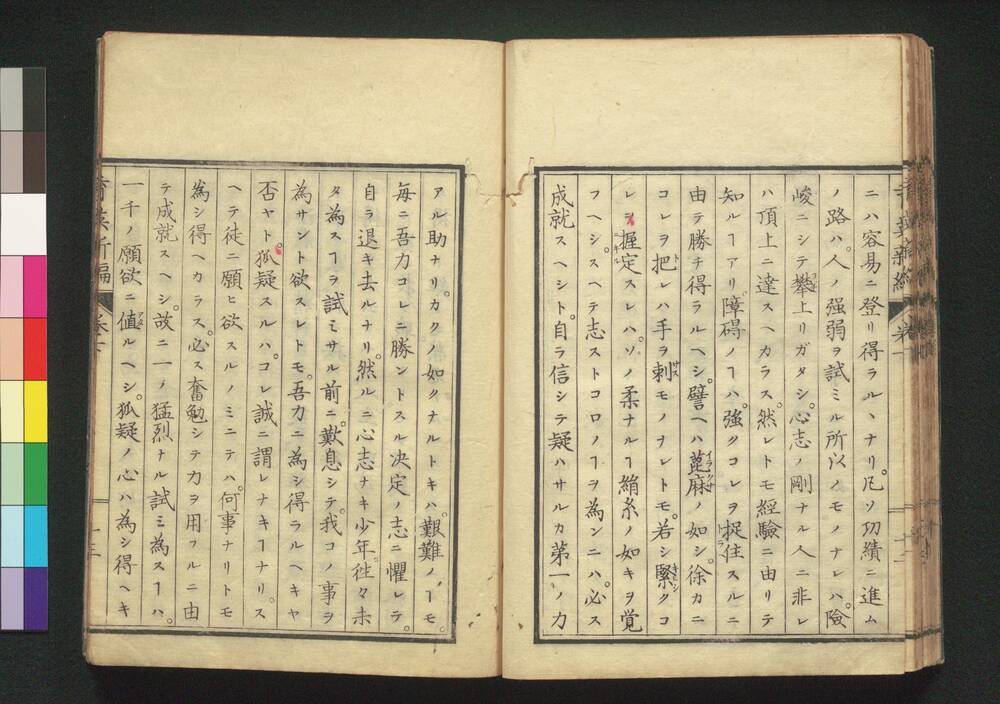 ニハ容易ニ登リ得ラルヽナリ。凡ソ功績ニ進ム
ノ路ハ。人ノ強弱ヲ試ミル所以ノモノナレハ。險
峻ニシテ攀上リガタシ。心志ノ剛ナル人ニ非レ
ハ頂上ニ達スヘカラス。然レトモ經驗ニ由リテ
知ルヿアリ。障碍ノヿハ。強クコレヲ捉住スルニ
由テ勝チ得ラルヘシ。譬ヘハ蓖麻ノ如シ。徐カニ
コレヲ把レハ手ヲ刺モノナレトモ。若シ緊クコ
レヲ握定スレハ。ソノ柔ナルヿ絹糸ノ如キヲ覚
フヘシ。スヘテ志ストコロノヿヲ為ンニハ。必ス
成就スヘシト。自ラ信シテ疑ハサルカ第一ノカ
アル助ナリ。カクノ如クナルトキハ。艱難ノヿモ。
毎ニ吾力コレニ勝ントスル决定ノ志ニ懼レテ。
自ラ退キ去ルナリ。然ルニ心志ナキ少年。徃々未
タ為スヿヲ試ミサル前ニ。歎息シテ。我コノ事ヲ
為サント欲スレトモ。吾力ニ為シ得ラルヘキヤ
否ヤト。狐疑スルハ。コレ誠ニ謂レナキヿナリ。ス
ヘテ徒ニ願ヒ欲スルノミニテハ。何事ナリトモ
為シ得ヘカラス。必ス奮勉シテ力ヲ用フルニ由
テ成就スヘシ。故ニ一ノ猛烈ナル試ミ為スヿハ。
一千ノ願欲ニ値ルヘシ。狐疑ノ心ハ為シ得ヘキ
育英新編
卷十
十三